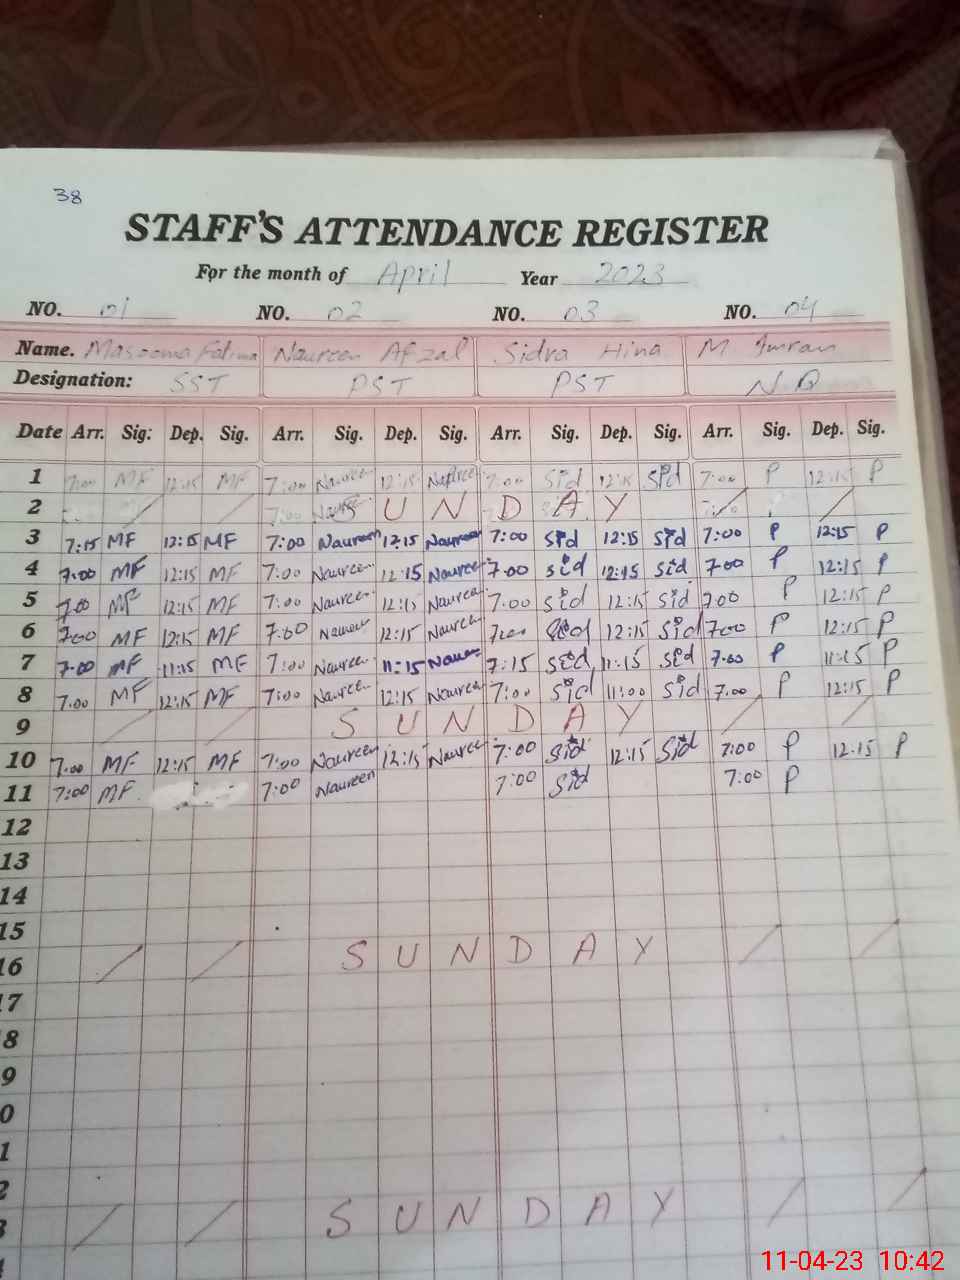 38
STAFF'S ATTENDANCE REGISTER
For the month of April Year 2023
NO. 01 NO. 02 NO. 03 NO. 04
Name. Masooma Fatima Naureen Afzal Sidra Hina M Imran
Designation: SST PST PST N.Q
Date Arr. Sig: Dep. Sig. Arr. Sig. Dep. Sig. Arr. Sig. Dep. Sig. Arr. Sig. Dep. Sig.
1 7:00 MF 12:15 MF 7:00 Naureen 12:15 Naureen 7:00 Sid 12:15 Sid 7:00 P 12:15 P
2 S U N D A Y
3 7:15 MF 12:15 MF 7:00 Naureen 12:15 Naureen 7:00 Sid 12:15 Sid 7:00 P 12:15 P
4 7:00 MF 12:15 MF 7:00 Naureen 12:15 Naureen 7:00 Sid 12:15 Sid 7:00 P 12:15 P
5 7:00 MF 12:15 MF 7:00 Naureen 12:15 Naureen 7:00 Sid 12:15 Sid 7:00 P 12:15 P
6 7:00 MF 12:15 MF 7:00 Naureen 12:15 Naureen 7:00 Sid 12:15 Sid 7:00 P 12:15 P
7 7:00 MF 11:15 MF 7:00 Naureen 11:15 Naureen 7:15 Sid 11:15 Sid 7:00 P 11:15 P
8 7:00 MF 12:15 MF 7:00 Naureen 12:15 Naureen 7:00 Sid 11:00 Sid 7:00 P 12:15 P
9 S U N D A Y
10 7:00 MF 12:15 MF 7:00 Naureen 12:15 Naureen 7:00 Sid 12:15 Sid 7:00 P 12:15 P
11 7:00 MF 7:00 Naureen 7:00 Sid 7:00 P
12
13
14
15
16 S U N D A Y
17
8
9
0
1
2
3 S U N D A Y
11-04-23 10:42